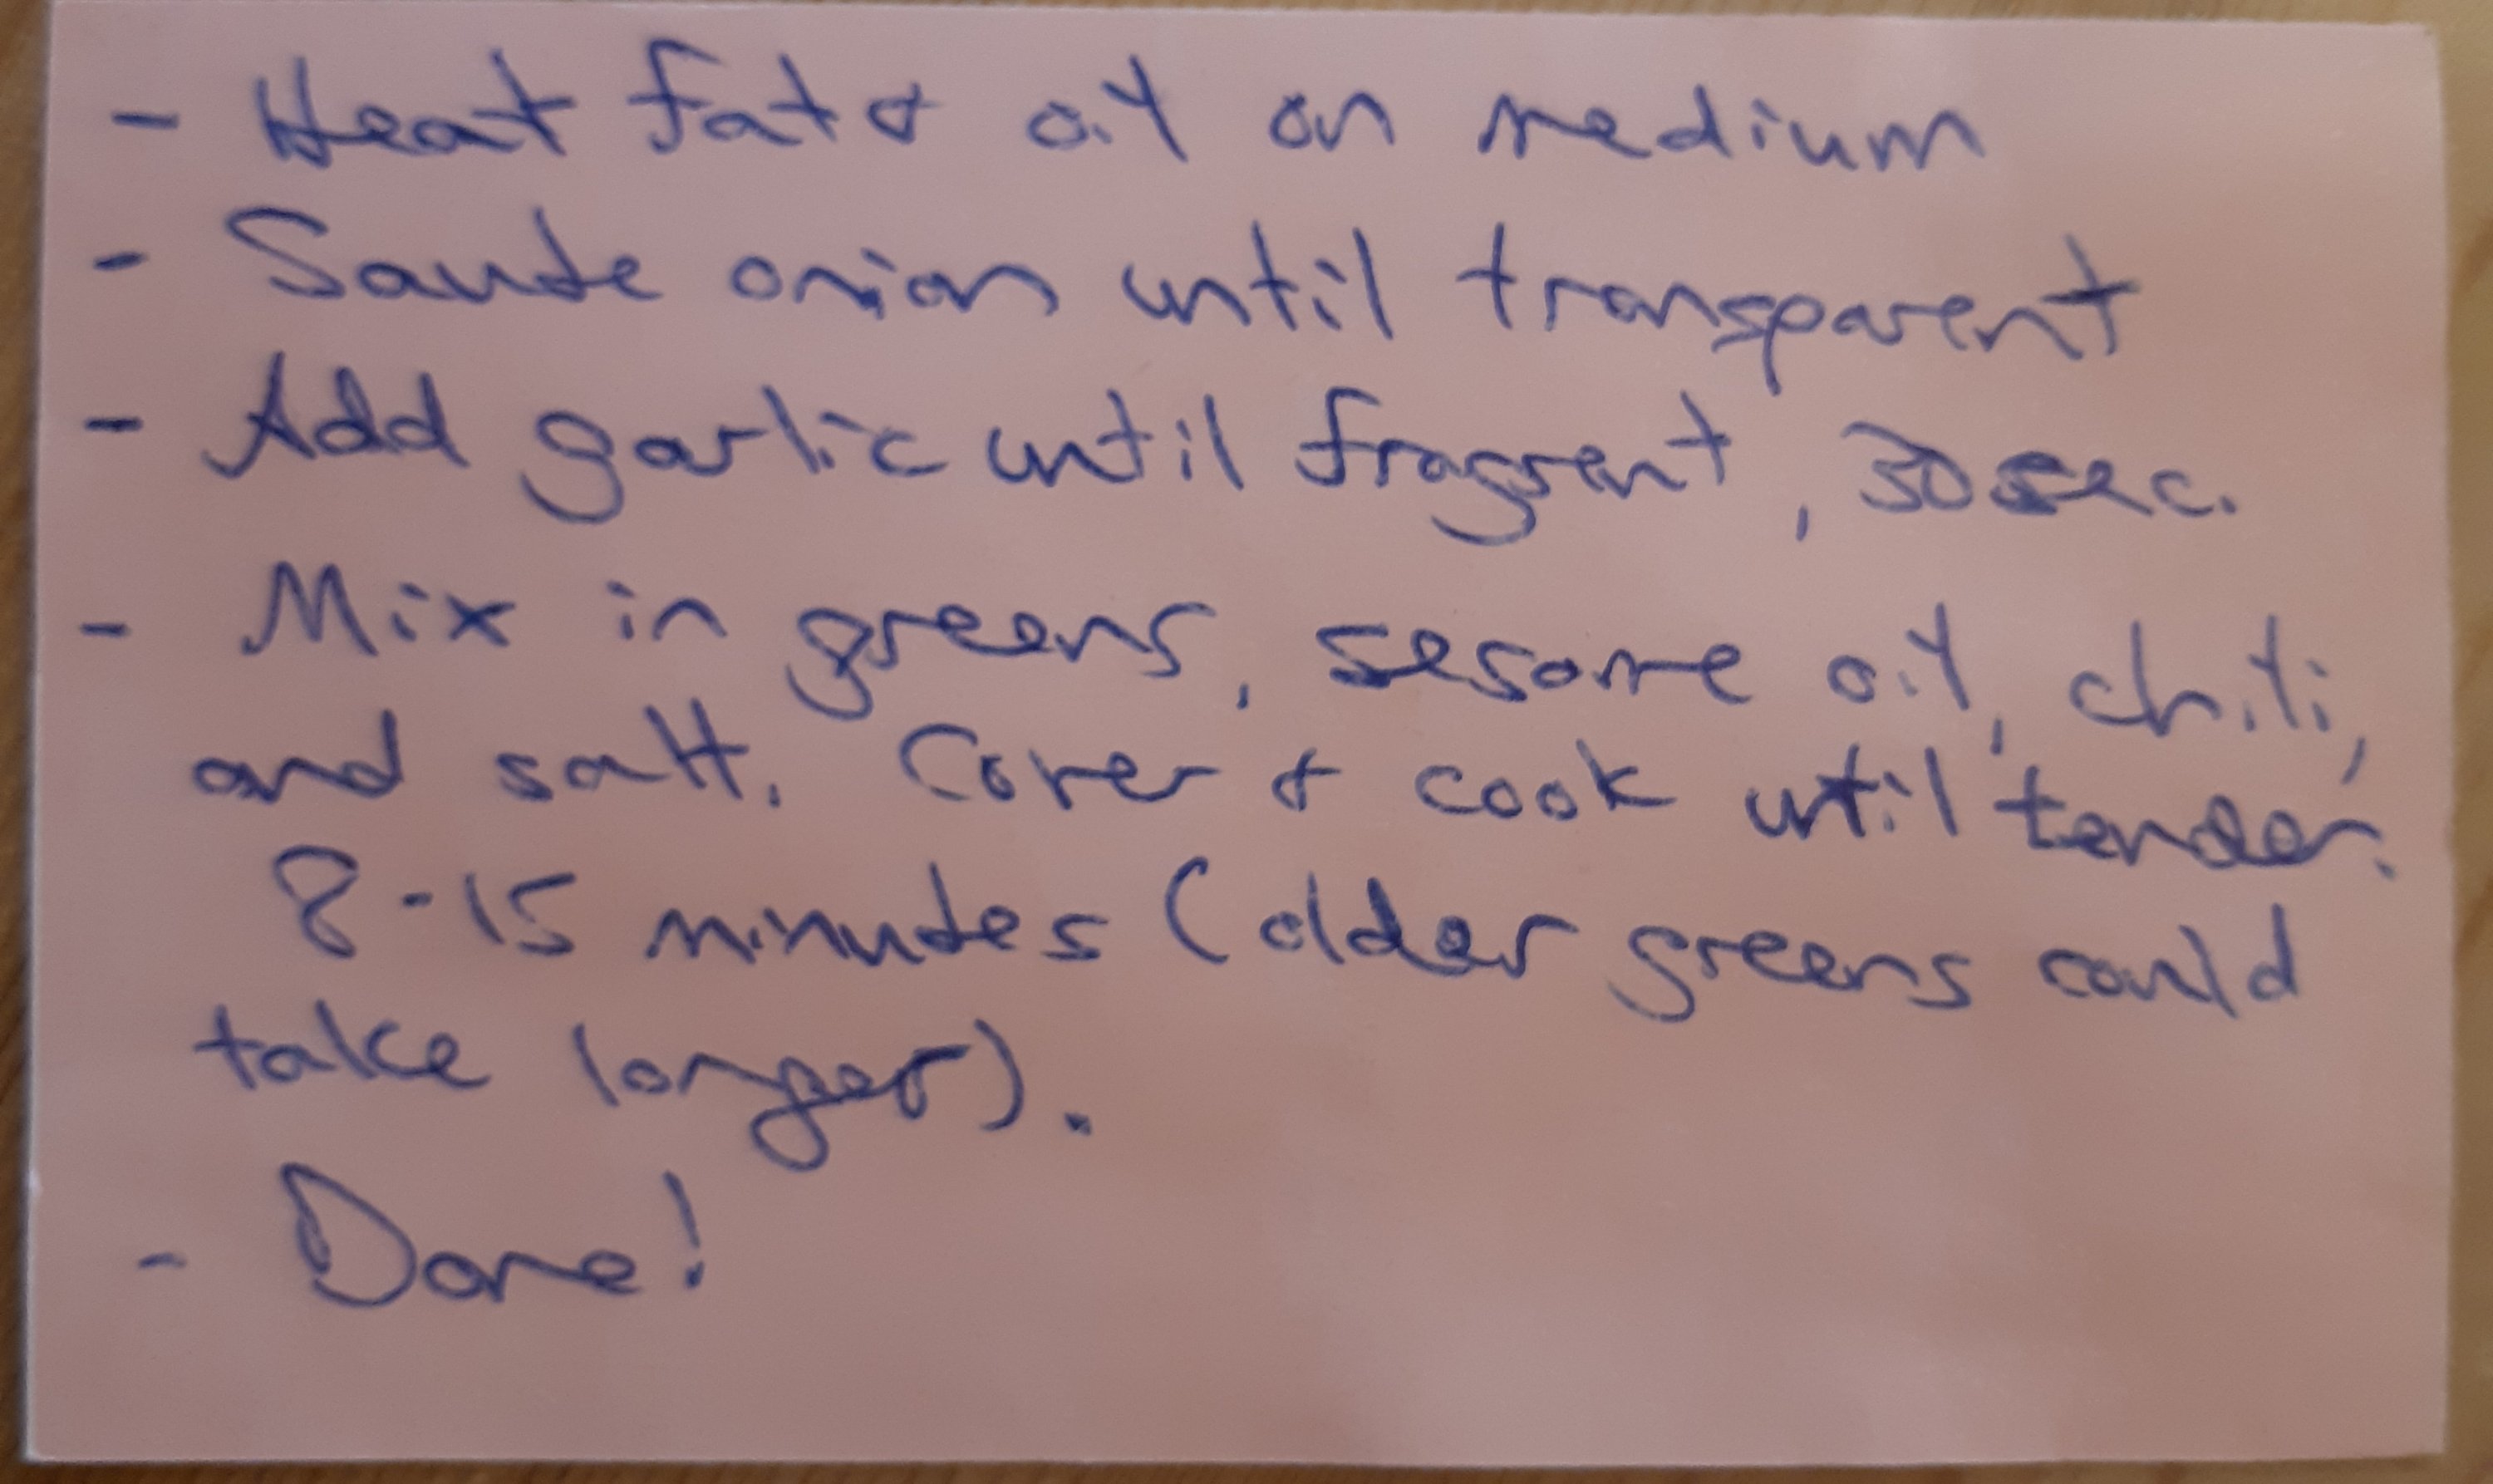 - Heat fat & oil on medium
- Saute onion until transparent
- Add garlic until fragrent, 30 sec.
- Mix in greens, sesame oil, chili,
and salt. Cover & cook until tender.
8-15 minutes (older greens could
take longer).
- Done!